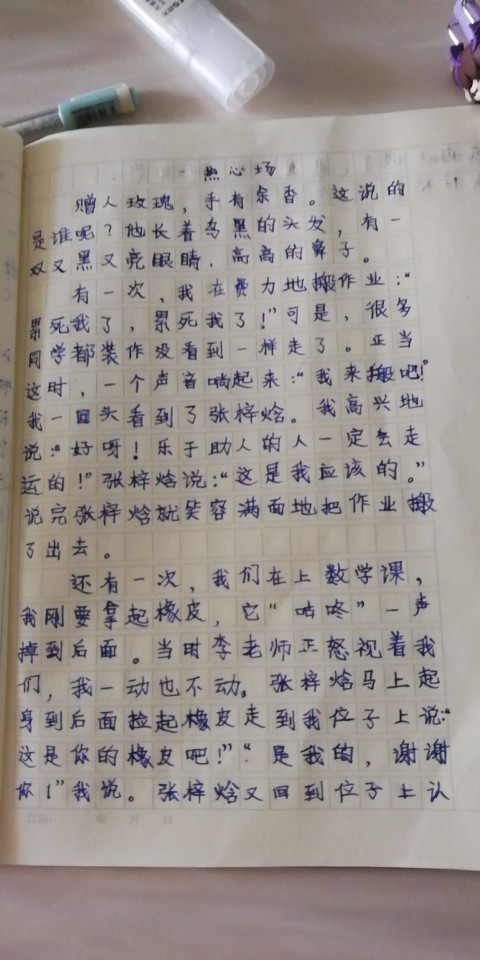 热心场
赠人玫瑰，手有余香。这说的
是谁呢？他长着乌黑的头发，有一
双又黑又亮眼睛，高高的鼻子。
有一次，我在费力地搬作业：“
累死我了，累死我了！”可是，很多
同学都装作没看到一样走了。正当
这时，一个声音响起来：“我来搬吧！”
我一回头看到了张梓焓。我高兴地
说：“好呀！乐于助人的人一定会走
运的！”张梓焓说：“这是我应该的。”
说完张梓焓就笑容满面地把作业搬
了出去。
还有一次，我们在上数学课，
我刚要拿起橡皮，它“咕咚”一声
掉到后面。当时李老师正怒视着我
们，我一动也不动。张梓焓马上起
身到后面捡起橡皮走到我位子上说：“
这是你的橡皮吧！”“是我的，谢谢
你！”我说。张梓焓又回到位子上认
年 月 日